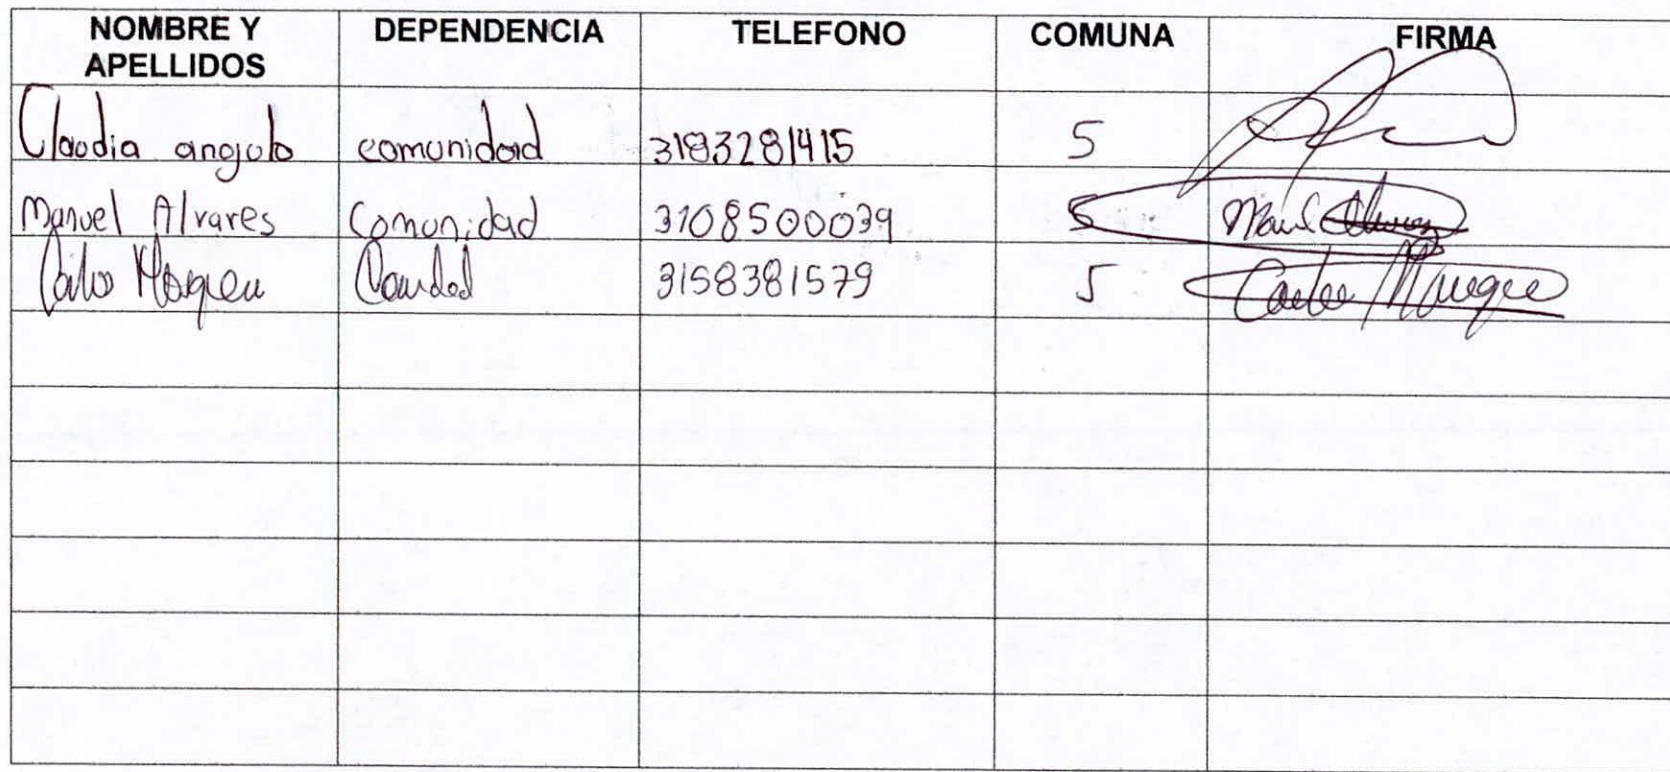 NOMBRE Y APELLIDOS DEPENDENCIA TELEFONO COMUNA FIRMA
Claudia angulo comunidad 3183281415 5
Manuel Alvares Comunidad 3108500039 5 Manuel Alvarez
3158381579 5 Carlos Marquez